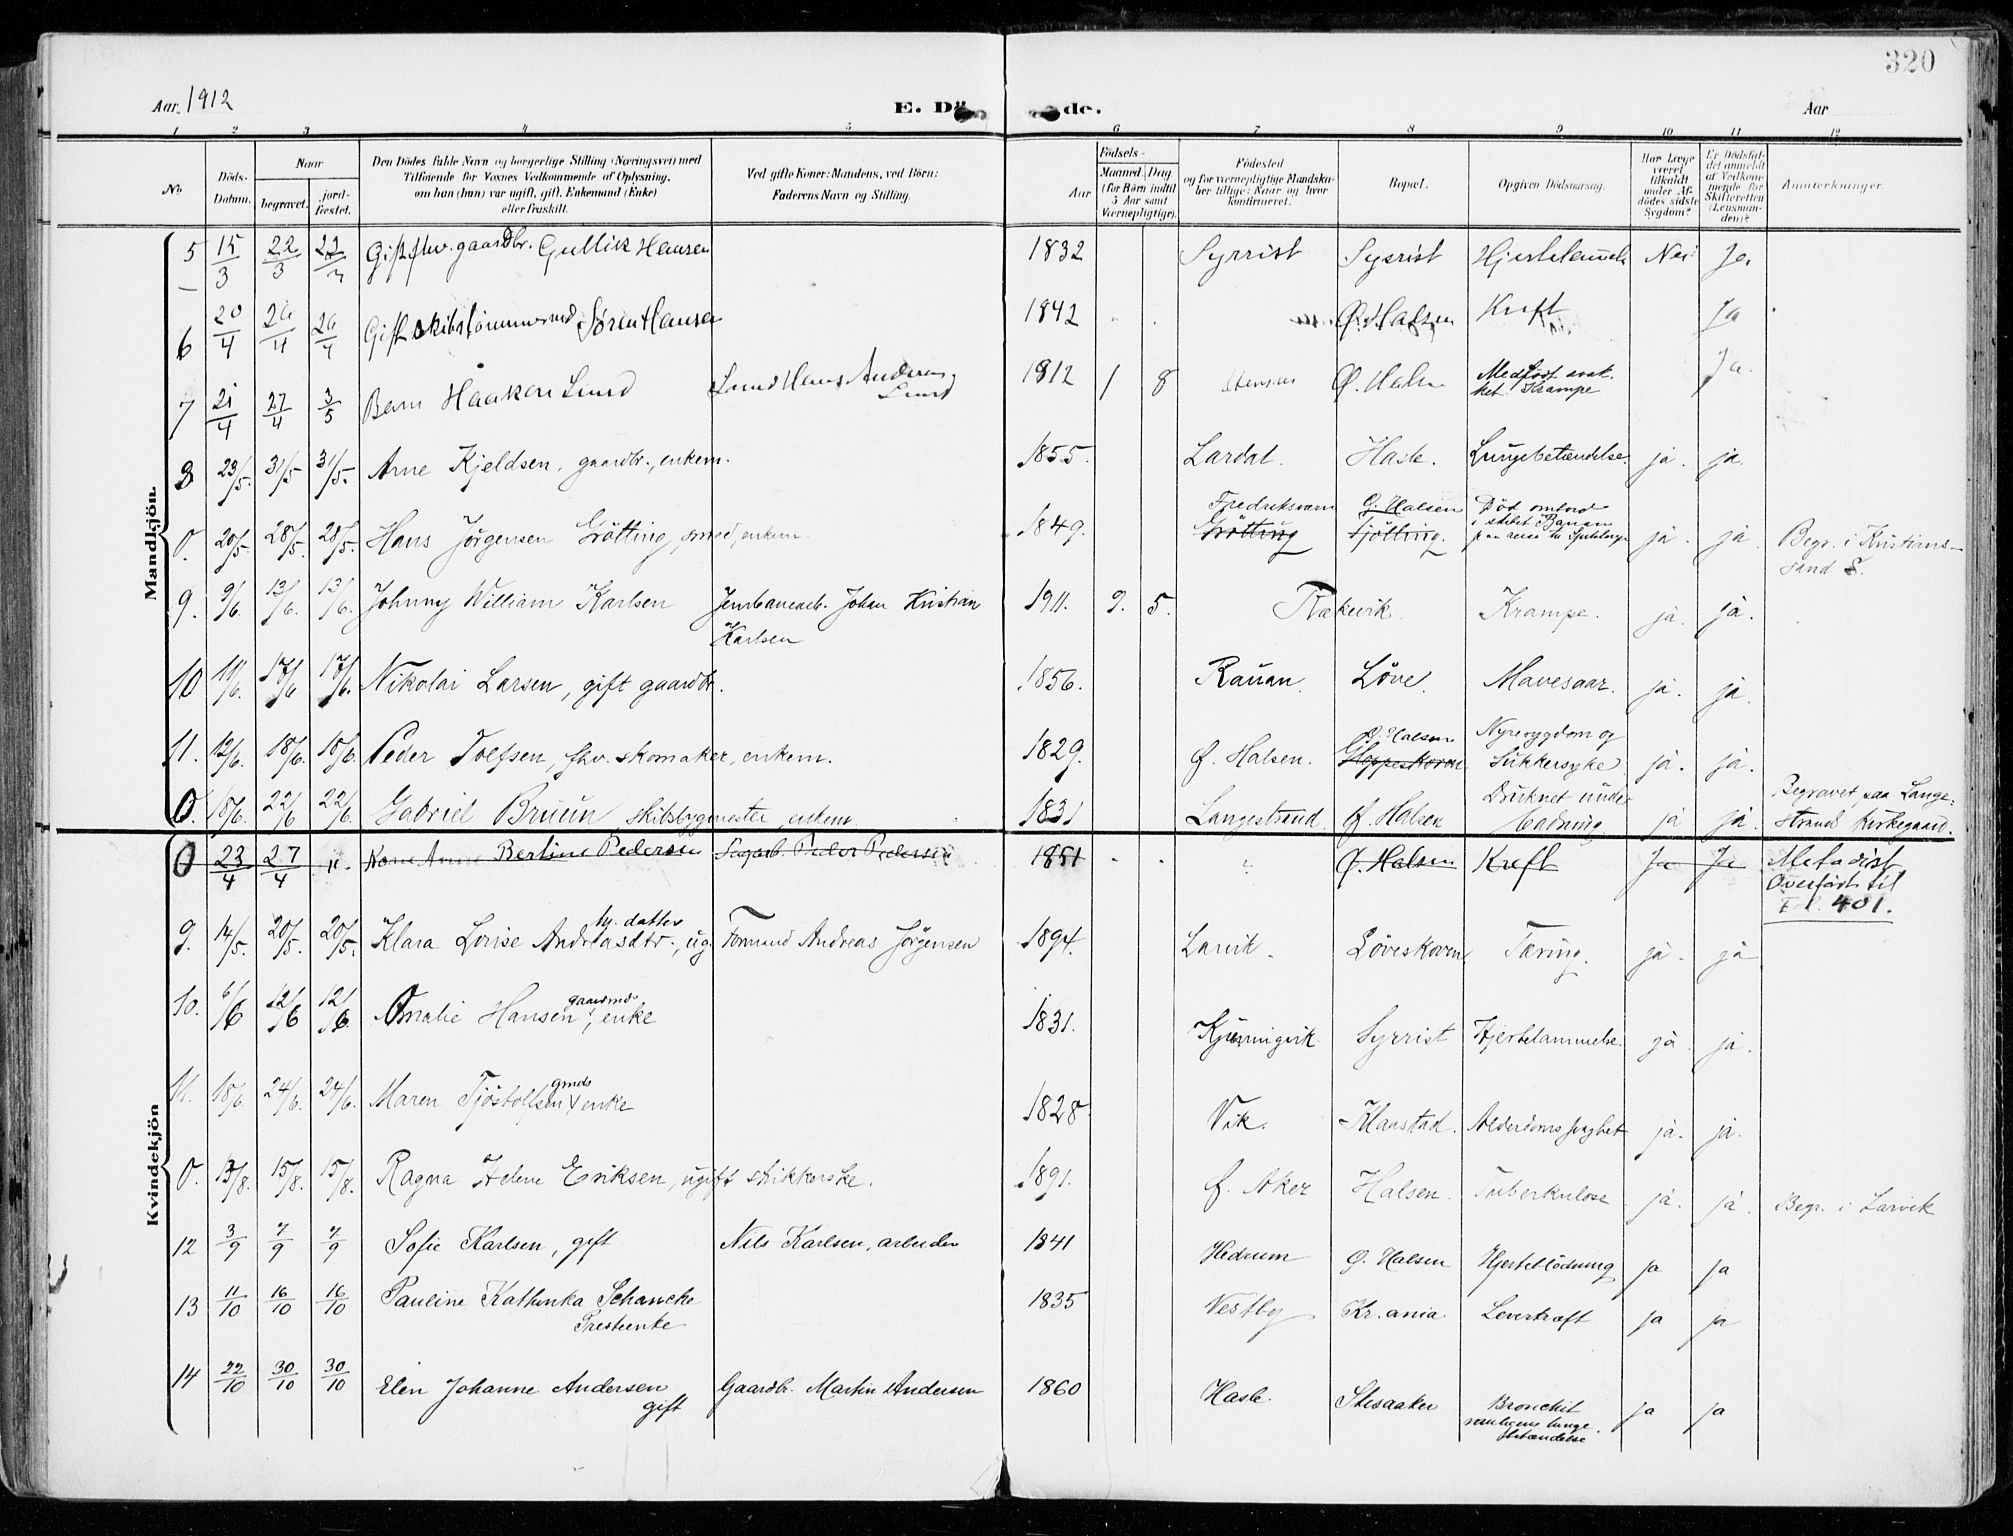 320
Aar 1912
E. Dø de.
Aar
1 2 3 4 5 6 7 8 9 10 11 12
No
Döds-Datum.
Naar
begravet.
jord-fæstet.
Den Dödes fulde Navn og borgerlige Stilling (Næringsvei) med
Tilföiende for Voxnes Vedkommende af Oplysning,
om han (hun) var ugift, gift, Enkemand (Enke)
eller fraskilt.
Ved gifte Koner: Mandens, ved Börn:
Faderens Navn og Stilling.
Aar
Födsels-
Maaned. Dag.
(for Börn indtil
5 Aar samt
Værnepligtige).
Födested
og for værnepligtige Mandska-
ber tillige: Naar og hvor
konfirmeret.
Bopæl.
Opgiven Dödsaarsag.
Har Læge
været
tilkaldt
under Af-
dödes sidste
Sygdom?
Er Dödsfal-
det anmeldt
af Vedkom-
mende for
Skifteretten
(Lensman-
den)?
Anmerkninger.
Mandkjön.
5 15/3 22/3 22/3 Gift fhv. gaardbr. Gullik Hansen 1832 Syrrist Syrrist Nei Ja
6 20/4 26/4 26/4 Gift skibstømmermd Sørin Hansen 1842 Ø. Halsen Kræft Ja
7 21/4 27/4 3/5 Barn Haakon Lund Hans Andersen Lund 1812 1 8 Ø. Halsen Medfødt svak-
het. Krampe Ja
8 23/5. 31/5 31/5. Arne Kjeldsen, gaardbr., enkem. 1855. Lardal. Hasle. Lungebetændelse. ja. ja.
0. 20/5. 28/5. 28/5. Hans Jørgensen Grøtting, smed, enkem. 1849. Fredriksværn Grøtting Ø. Halsen Død ombord
i skibet ja. ja Begr. i Kristians-
sand S.
9. 9/6. 13/6. 13/6. Johnny William Karlsen Jernbanearb. Johan Kristian
Karlsen 1911. 9. 5. Rækevik. Krampe. ja. ja.
10 10/6. 17/6 17/6. Nikolai Larsen, gift gaardbr. 1856. Rauan. Løve. Mavesaar. ja. ja
11. 12/6. 18/6. 18/6. Peder Tolfsen, fhv. skomaker, enkem. 1829. Ø. Halsen. Ø. Halsen Gloppeskoven Nyresygdom og
Sukkersyke ja. ja.
0. 18/6. 22/6 22/6. Gabriel Bruun, skibsbygmester, enkem. 1831 Langestrand Ø. Halsen Druknet under
badning ja ja. Begravet paa Lange-
strands Kirkegaard.
Kvindekjön
0 23/4 27/4 " Kone Anne Bertine Pedersen Sagarb. Peder Pedersen 1851 Ø. Halsen Kræft Ja Ja Metodist
Overført til
Fol. 401.
9. 14/5. 20/5. 20/5. Klara Lovise Andreasdtr., ug. hj. datter Formand Andreas Jørgensen 1894. Larvik. Løveskoven Tæring. ja. ja
10. 6/6 12/6 12/6. Amalie Hansen, gaardmds enke 1831. Syrrist Hjertelammelse. ja. ja.
11. 18/6. 24/6. 24/6. Maren Tjøstolfsen gmds enke 1828. Vik. Klaastad. Alderdomssvaghet ja. ja.
0. 13/8. 15/8. 15/8. Ragna Helene Eriksen, ugift strikkerske. 1891. Ø. Aker Halsen. Tuberkulose ja. ja. Begr. i Larvik
12 3/9 7/9 7/9 Sofie Karlsen, gift Nils Karlsen, arbeider 1841 Hedrum Ø. Halsen Hjerteblödning ja ja
13 11/10 16/10 16/10 Pauline Kathinka Schancke
Presteenke 1835 Vestby Kr.ania Leverkræft ja ja
14 22/10 30/10 30/10 Elen Johanne Andersen
gift Gaardbr. Martin Andersen 1860 Hasle. Stesaaker Bronchit
lunge-
betændelse ja ja